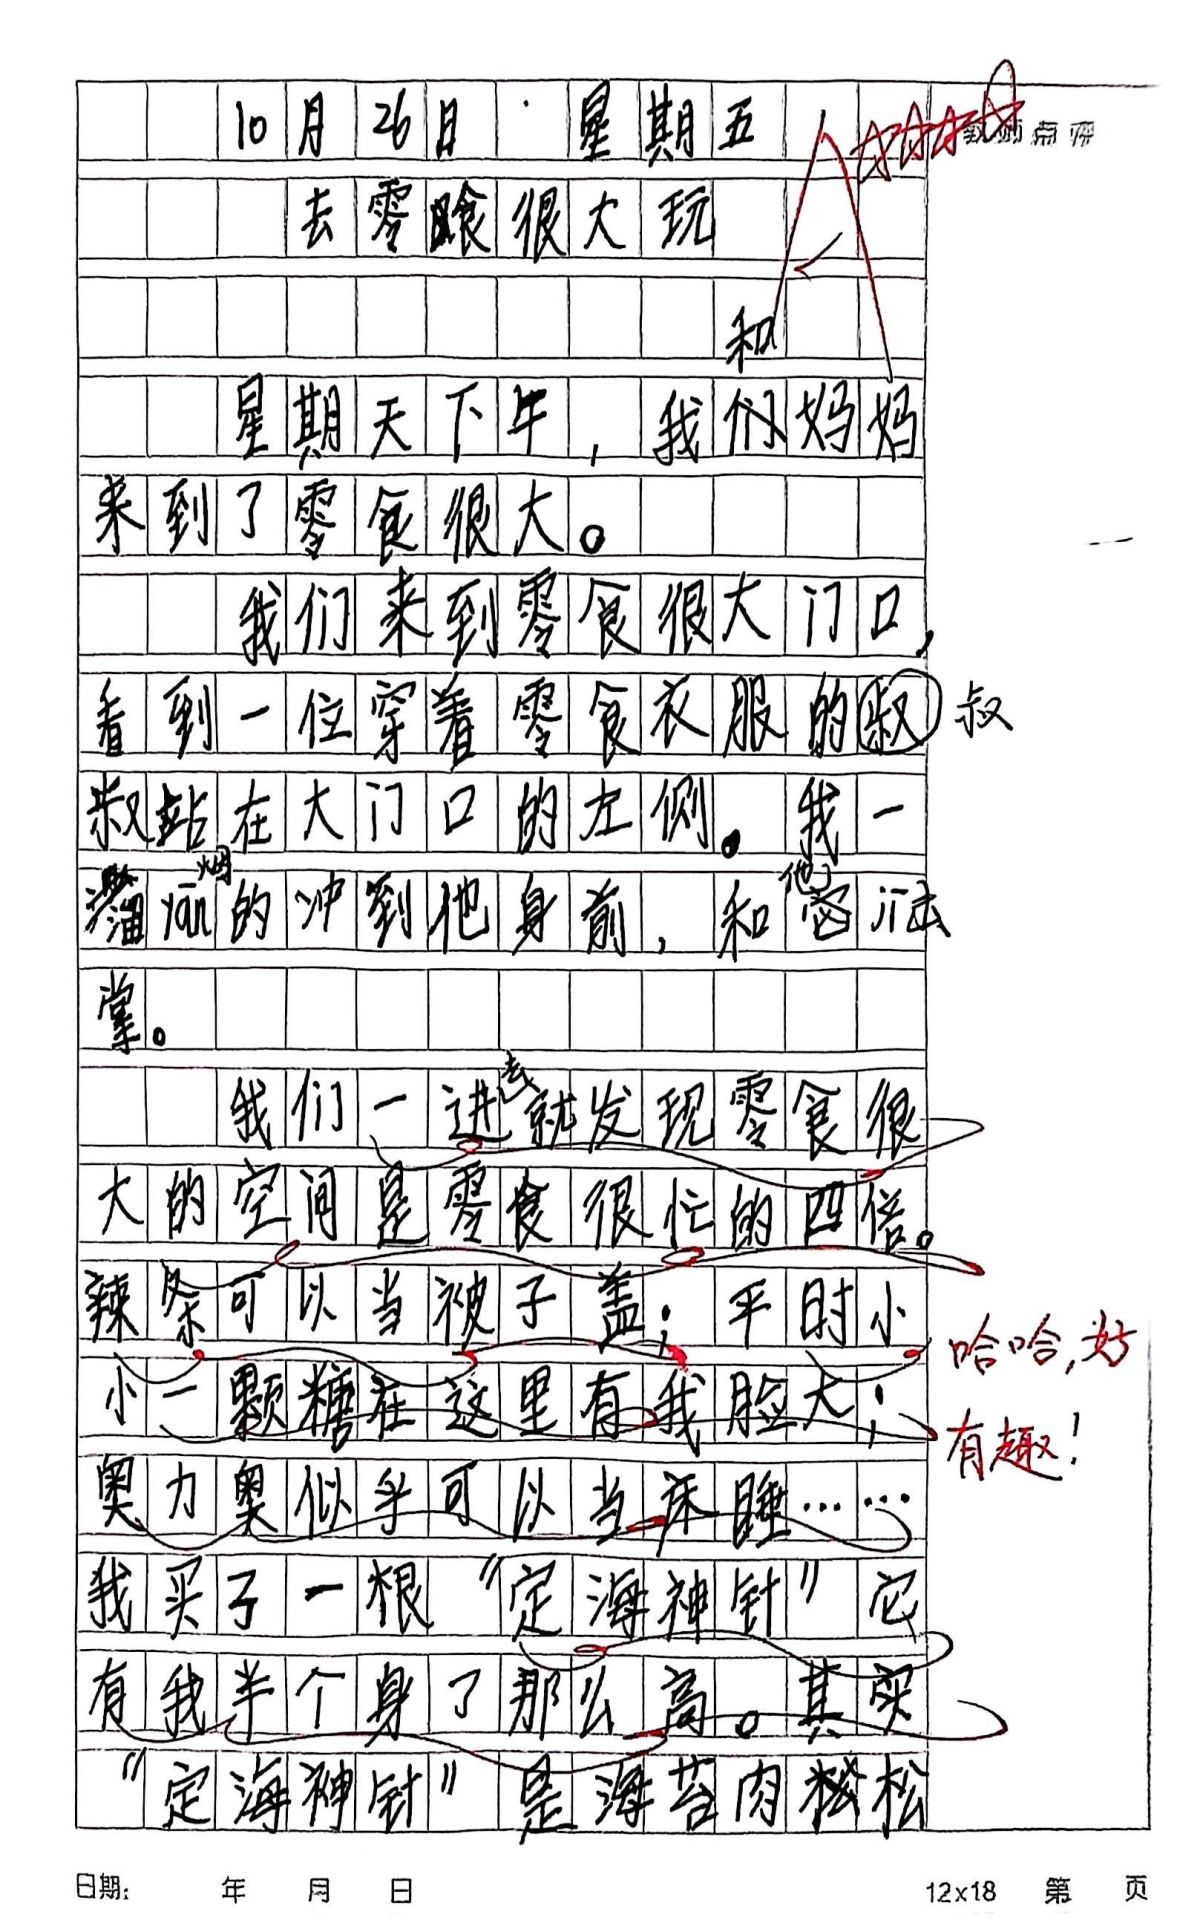 10月26日 星期五
教师点评
去零食很大玩
和
星期天下午，我们妈妈
来到了零食很大。
我们来到零食很大门口，
看到一位穿着零食衣服的叔 叔
叔站在大门口的左侧。我一
溜yān烟的冲到他身前，和他击
掌。
我们一进去就发现零食很
大的空间是零食很忙的四倍。
辣条可以当被子盖；平时小
小一颗糖在这里有我脸大；
哈哈，好
有趣！
奥力奥似乎可以当床睡……
我买了一根“定海神针”它
有我半个身了那么高。其实
“定海神针”是海苔肉松
日期： 年 月 日 12×18 第 页